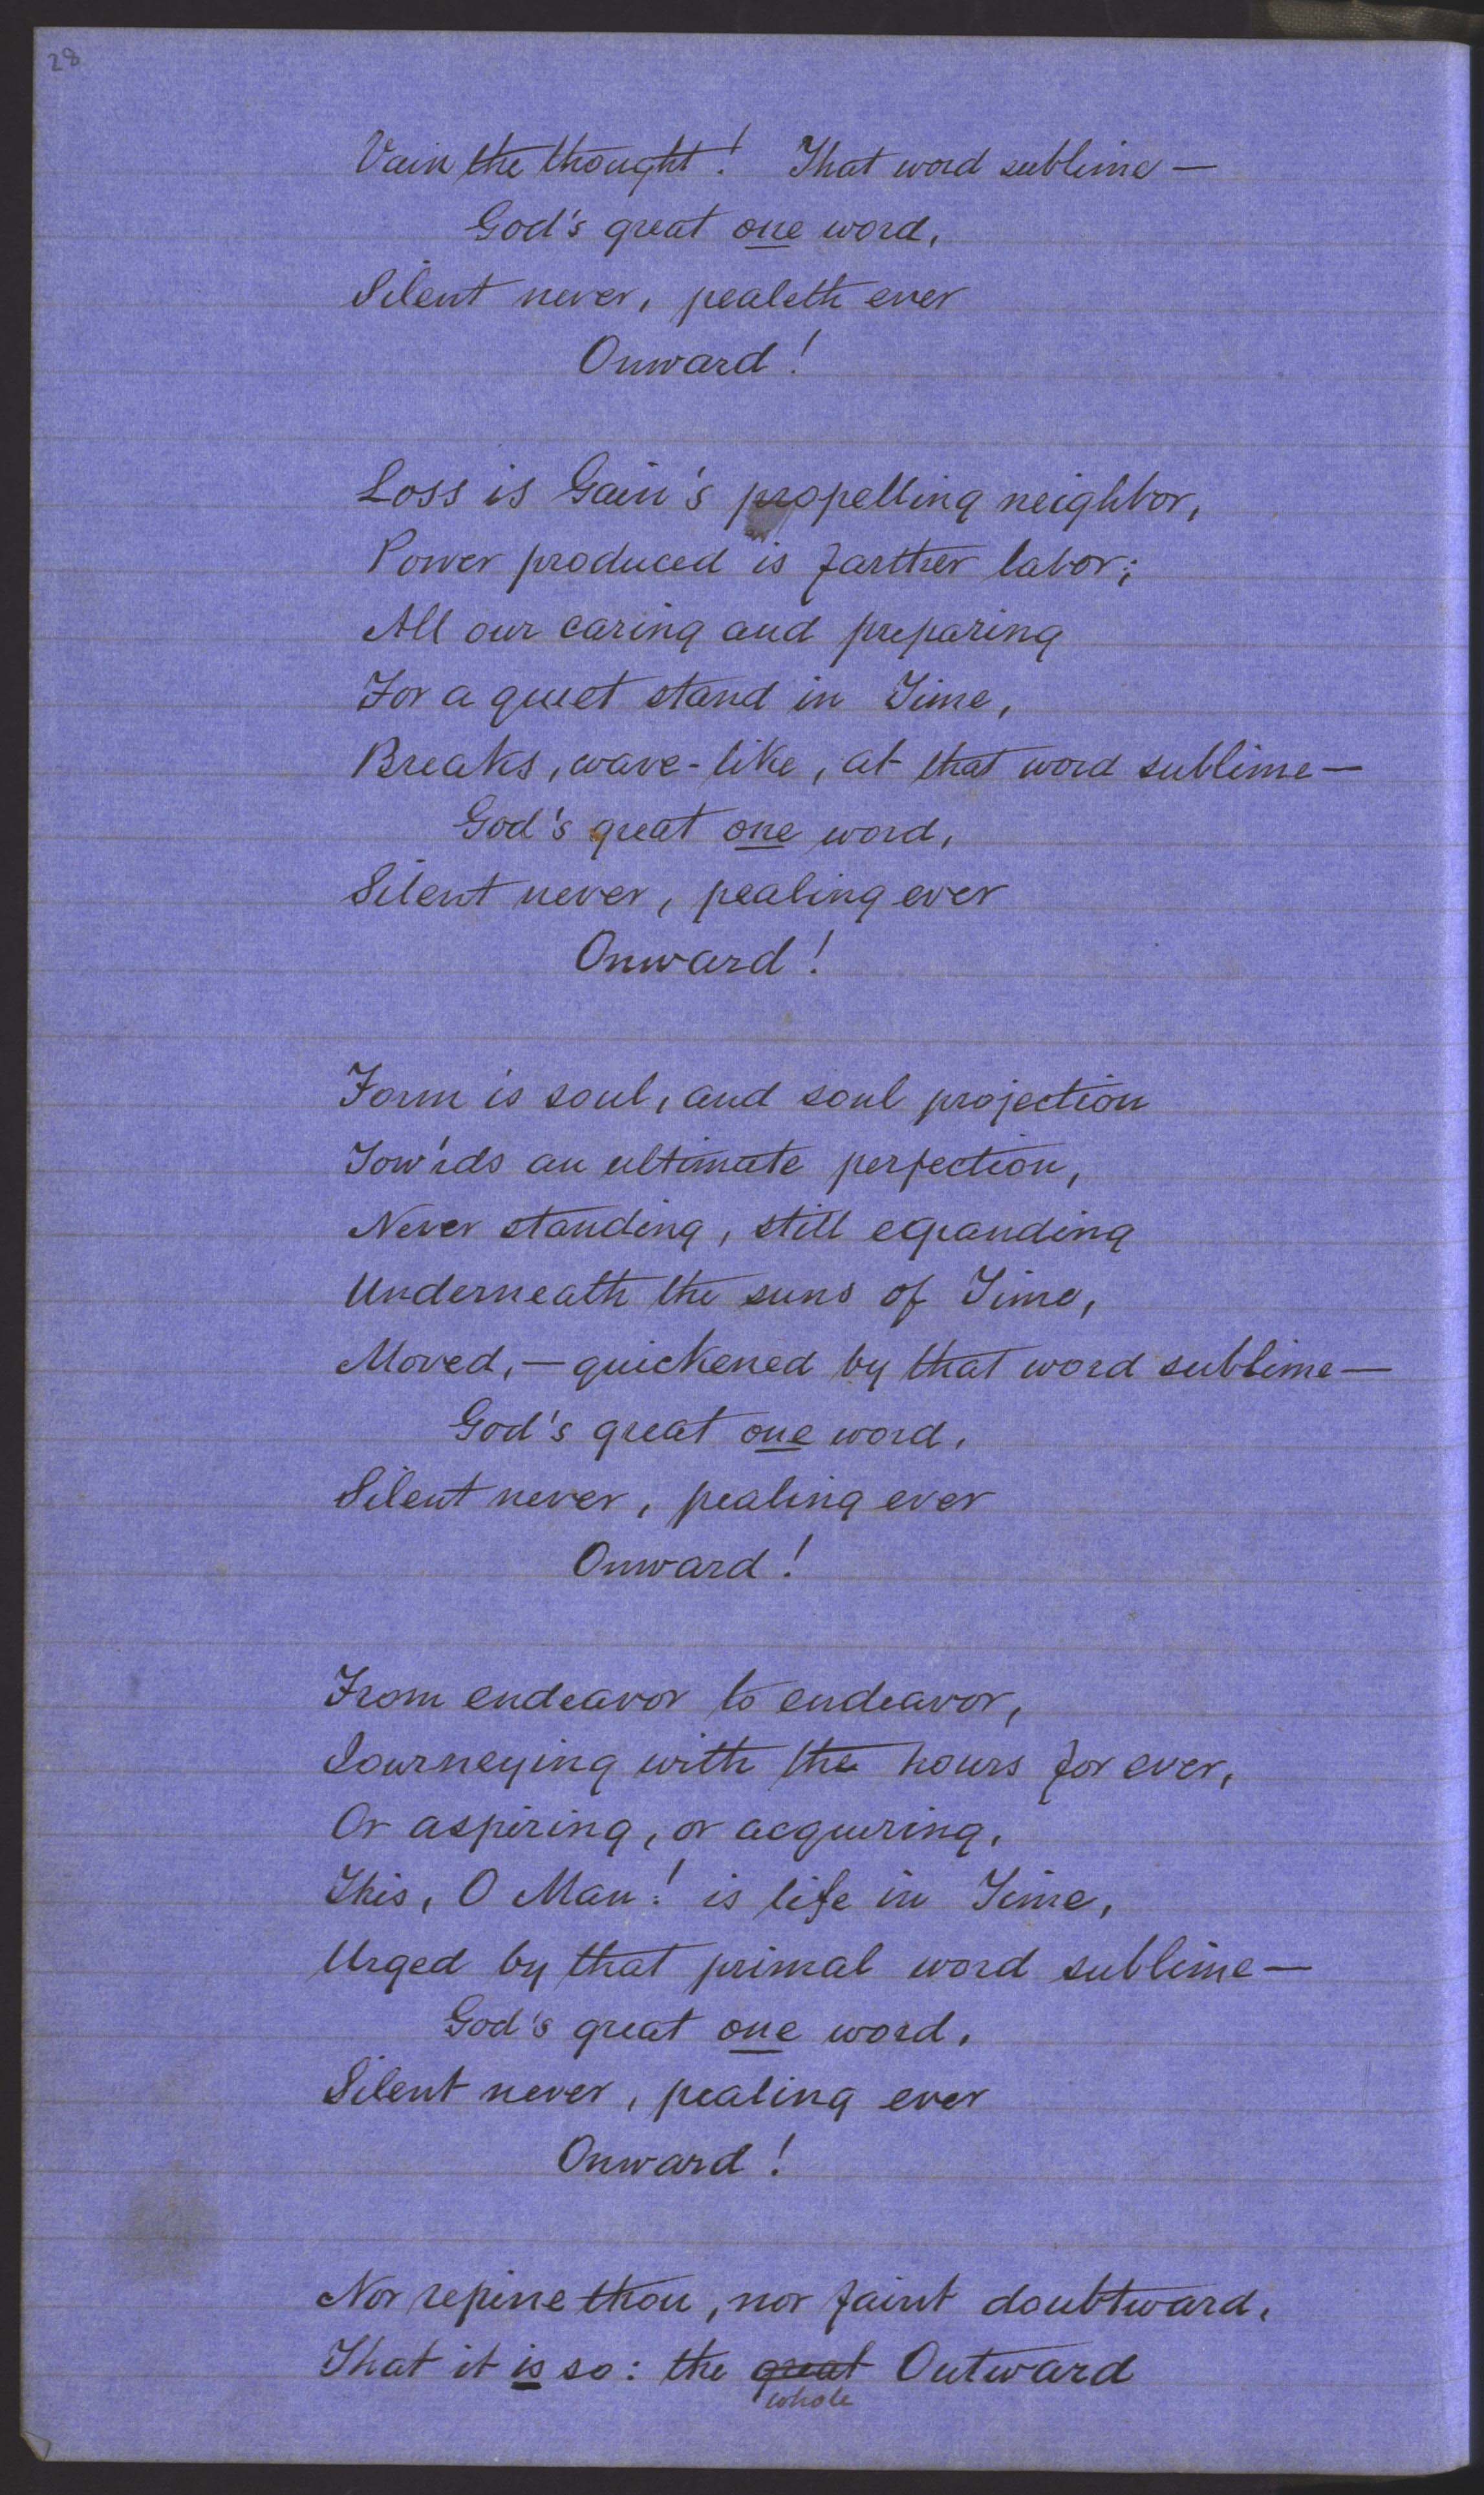 28
Vain the thought! That word sublime —
God's great one word,
Silent never, pealeth ever
Onward!
Loss is Gain's propelling neighbor,
Power produced is farther labor;
All our caring and preparing
For a quiet stand in Time,
Breaks, wave-like, at that word sublime —
God's great one word,
Silent never, pealing ever
Onward!
Form is soul, and soul projection
Tow'rds an ultimate perfection,
Never standing, still expanding
Underneath the suns of Time,
Moved, — quickened by that word sublime —
God's great one word,
Silent never, pealing ever
Onward!
From endeavor to endeavor,
Journeying with the hours for ever,
Or aspiring, or acquiring,
This, O Man! is life in Time,
Urged by that primal word sublime —
God's great one word,
Silent never, pealing ever
Onward!
Nor repine thou, nor faint doubtward,
That it is so: the great Outward
whole